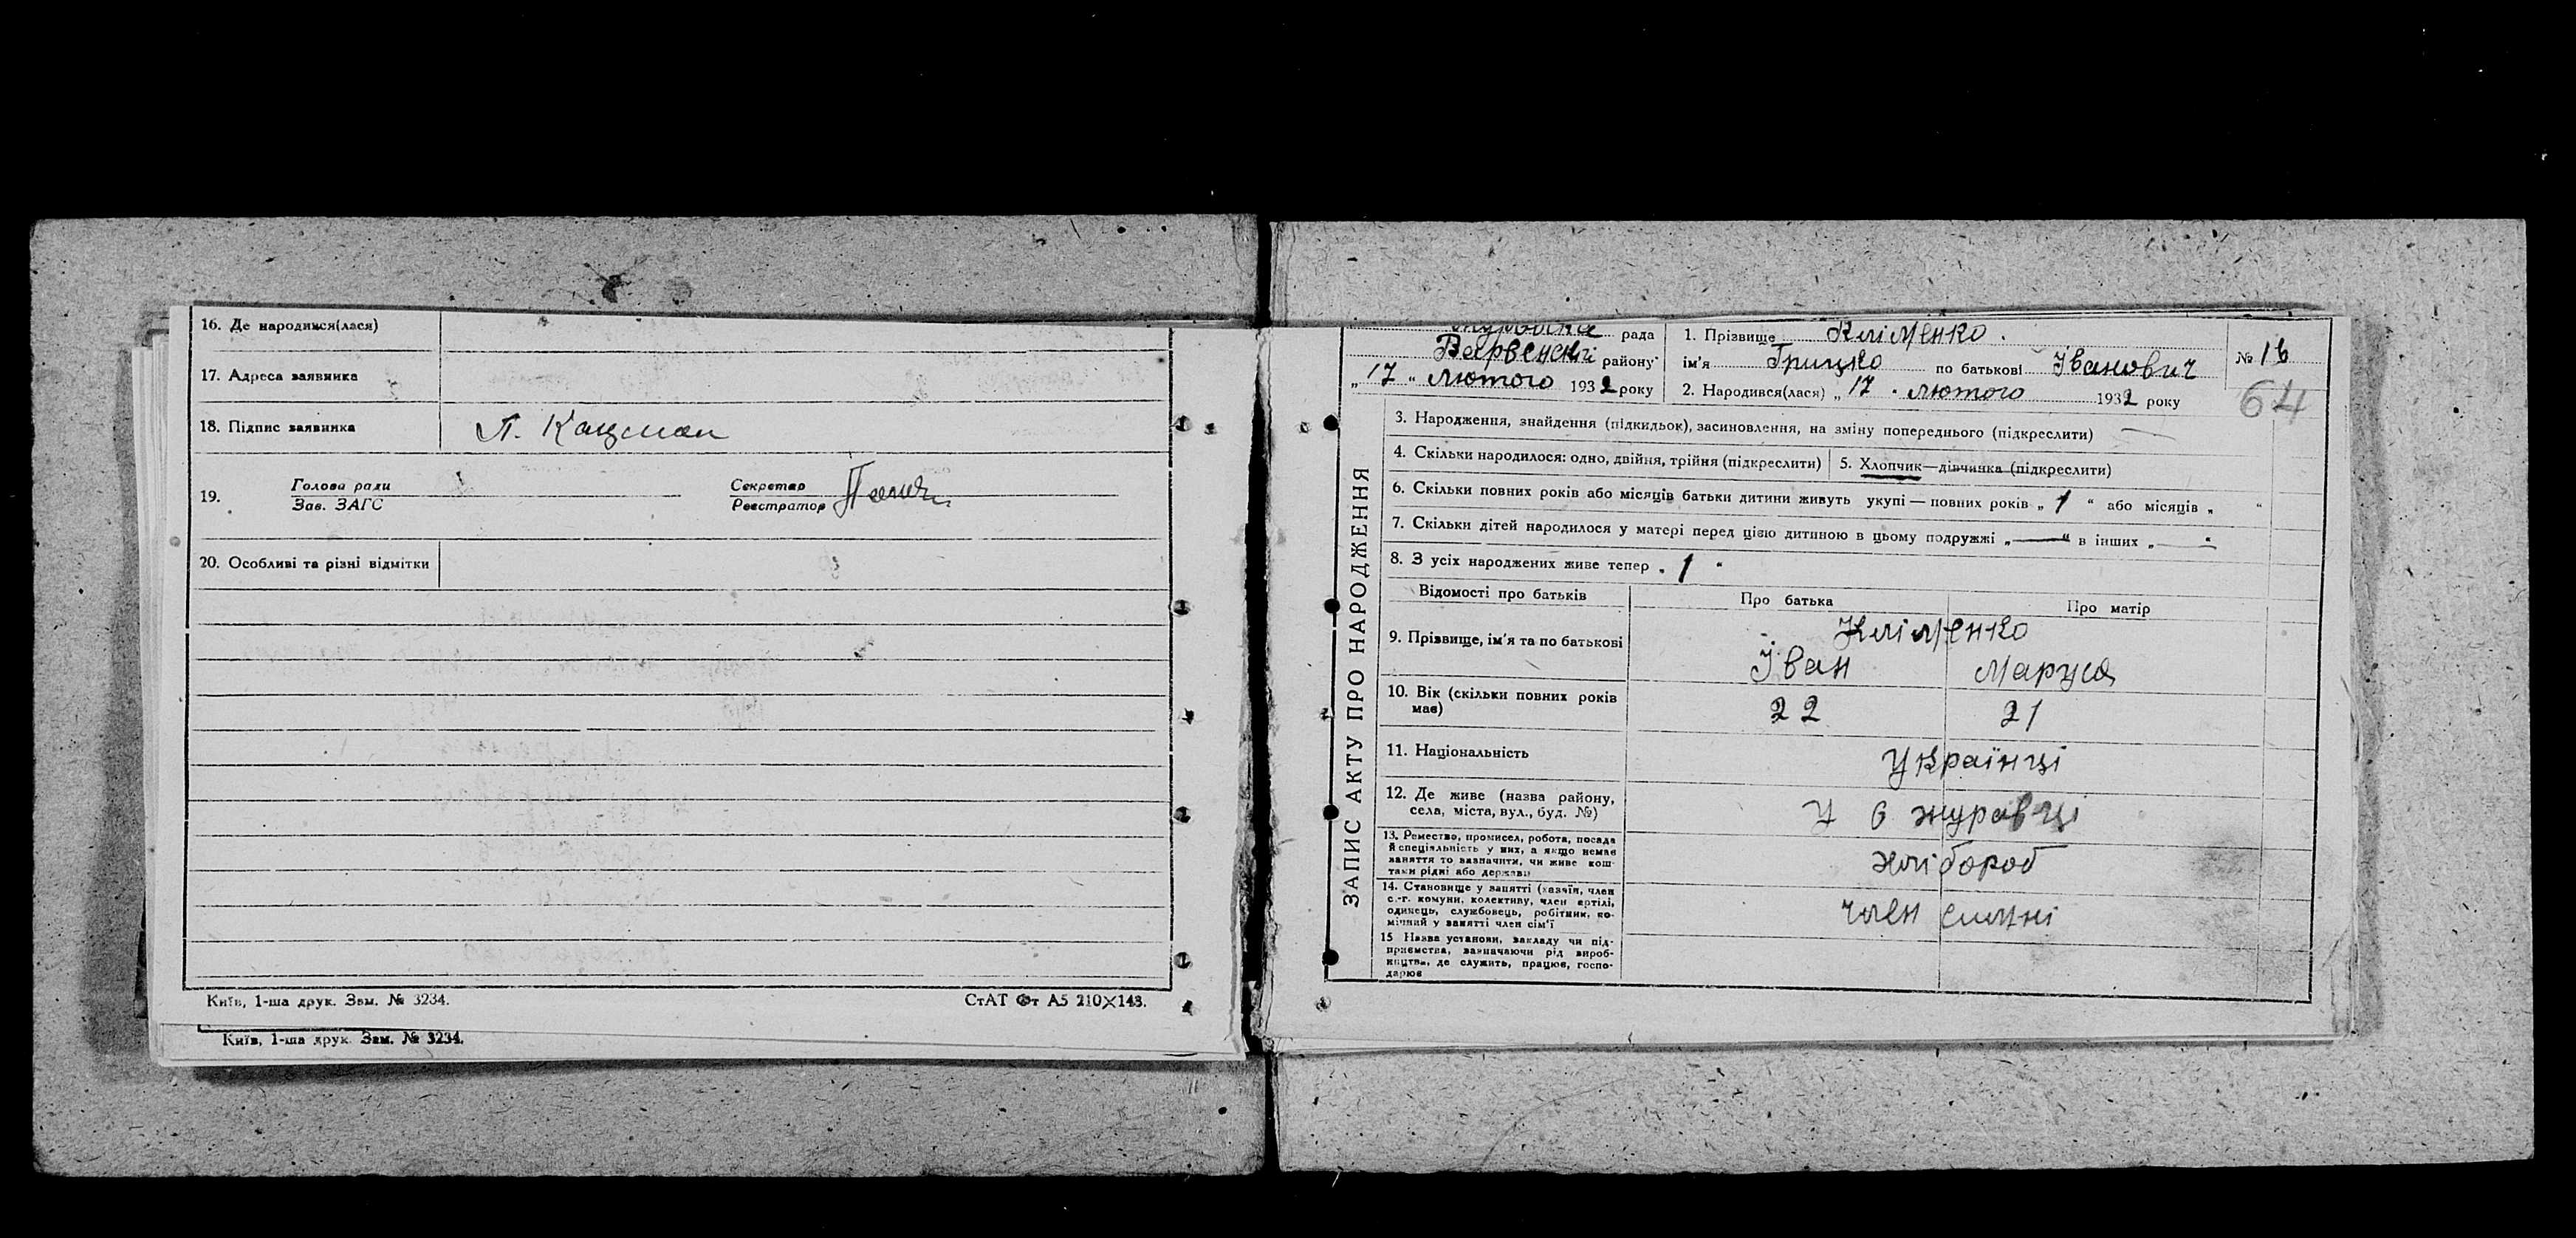 16. Де народився(лася)
17. Адреса заявника
18. Підпис заявника П. Кацман
19. Голова ради Секретар
Зав. ЗАГС Реєстратор
20. Особливі та різні відмітки
Київ, 1-ша друк. Зам. № 3234. СтАТ Фт А5 210×148.
Київ, 1-ша друк. Зам. № 3234.
ЗАПИС АКТУ ПРО НАРОДЖЕННЯ
рада
Варвенскі району
„17“ лютого 1932 року
1. Прізвище Кліменко.
ім'я Грицко по батькові Іванович
2. Народився(лася) „17“ лютого 1932 року
№ 16
64
3. Народження, знайдення (підкидьок), засиновлення, на зміну попереднього (підкреслити) —
4. Скільки народилося: одно, двійня, трійня (підкреслити) 5. Хлопчик—дівчинка (підкреслити)
6. Скільки повних років або місяців батьки дитини живуть укупі — повних років „1“ або місяців „ “
7. Скільки дітей народилося у матері перед цією дитиною в цьому подружжі „—“ в інших „—“
8. З усіх народжених живе тепер „1“
Відомості про батьків Про батька Про матір
9. Прізвище, ім'я та по батькові Кліменко
Іван Маруся
10. Вік (скільки повних років
має) 22 21
11. Національність Українці
12. Де живе (назва району,
села, міста, вул., буд. №) У с журавці
13. Ремество, промисел, робота, посада
й спеціяльність у них, а якщо немає
заняття то зазначити, чи живе кош-
тами рідні або держави
хлібороб
14. Становище у занятті (хазяїн, член
с.-г. комуни, колективу, член артілі,
одинець, службовець, робітник, по-
мічний у занятті член сім'ї
член
15 Назва установи, закладу чи під-
приємства, зазначаючи рід вироб-
ництва, де служить, працює, госпо-
дарює